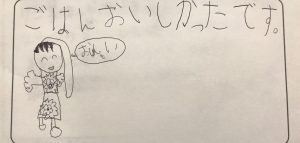 ごはんおいしかったです。
おいしい